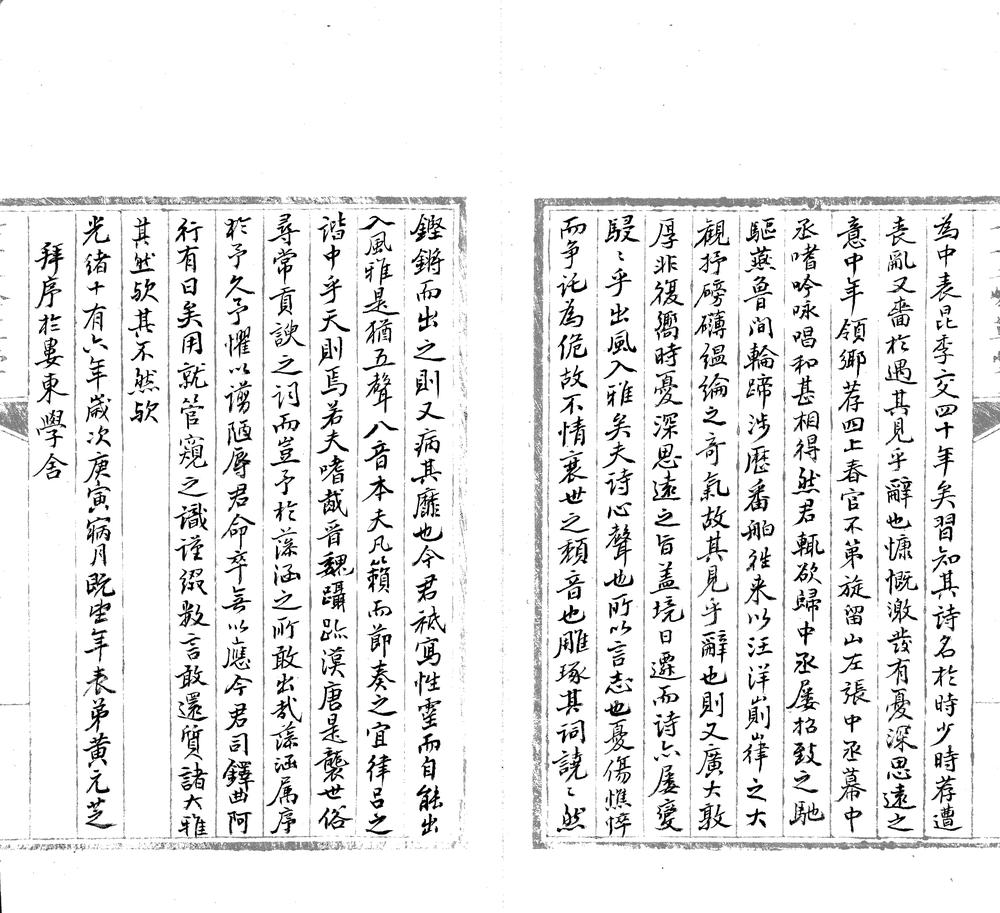 為中表昆季交四十年矣習知其詩名於時少時荐遭
喪亂又嗇於遇其見乎辭也慷慨激發有憂深思遠之
意中年領鄉荐四上春官不第旋留山左張中丞幕中
丞嗜吟咏唱和甚相得然君輒欲歸中丞屢招致之馳
驅燕魯間輪蹄涉歷番舶往来以汪洋崱嵂之大
觀抒磅礴縕綸之奇氣故其見乎辭也則又廣大敦
厚非復嚮時憂深思遠之旨盖境日遷而詩亦屢變
駸〻乎出風入雅矣夫詩心聲也所以言志也憂傷憔悴
而争託為佹故不情衰世之頹音也雕琢其词譊〻然
鏗鏘而出之則又病其靡也今君祇寫性靈而自能出
入風雅是猶五聲八音本夫凡籟而節奏之宜律呂之
諧中乎天則焉若夫嗜胾晋魏躡跡漢唐是襲世俗
尋常貢諛之词而豈予於藻涵之所敢出哉藻涵属序
於予久予懼以謭陋辱君命卒無以應今君司鐸曲阿
行有日矣用就管窺之識謹綴数言敢還質諸大雅
其然欤其不然欤
光緒十有六年歲次庚寅寎月既望年表弟黄元芝
拜序於婁東學舍